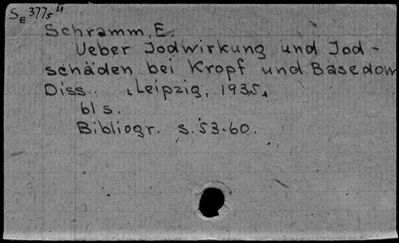 SE 3775 4
Schramm, E.
Ueber Jodwirkung und Jod-
schäden bei Kropf und Basedow
Diss. Leipzig, 1935.
61 s.
Bibliogr. s. 53-60.